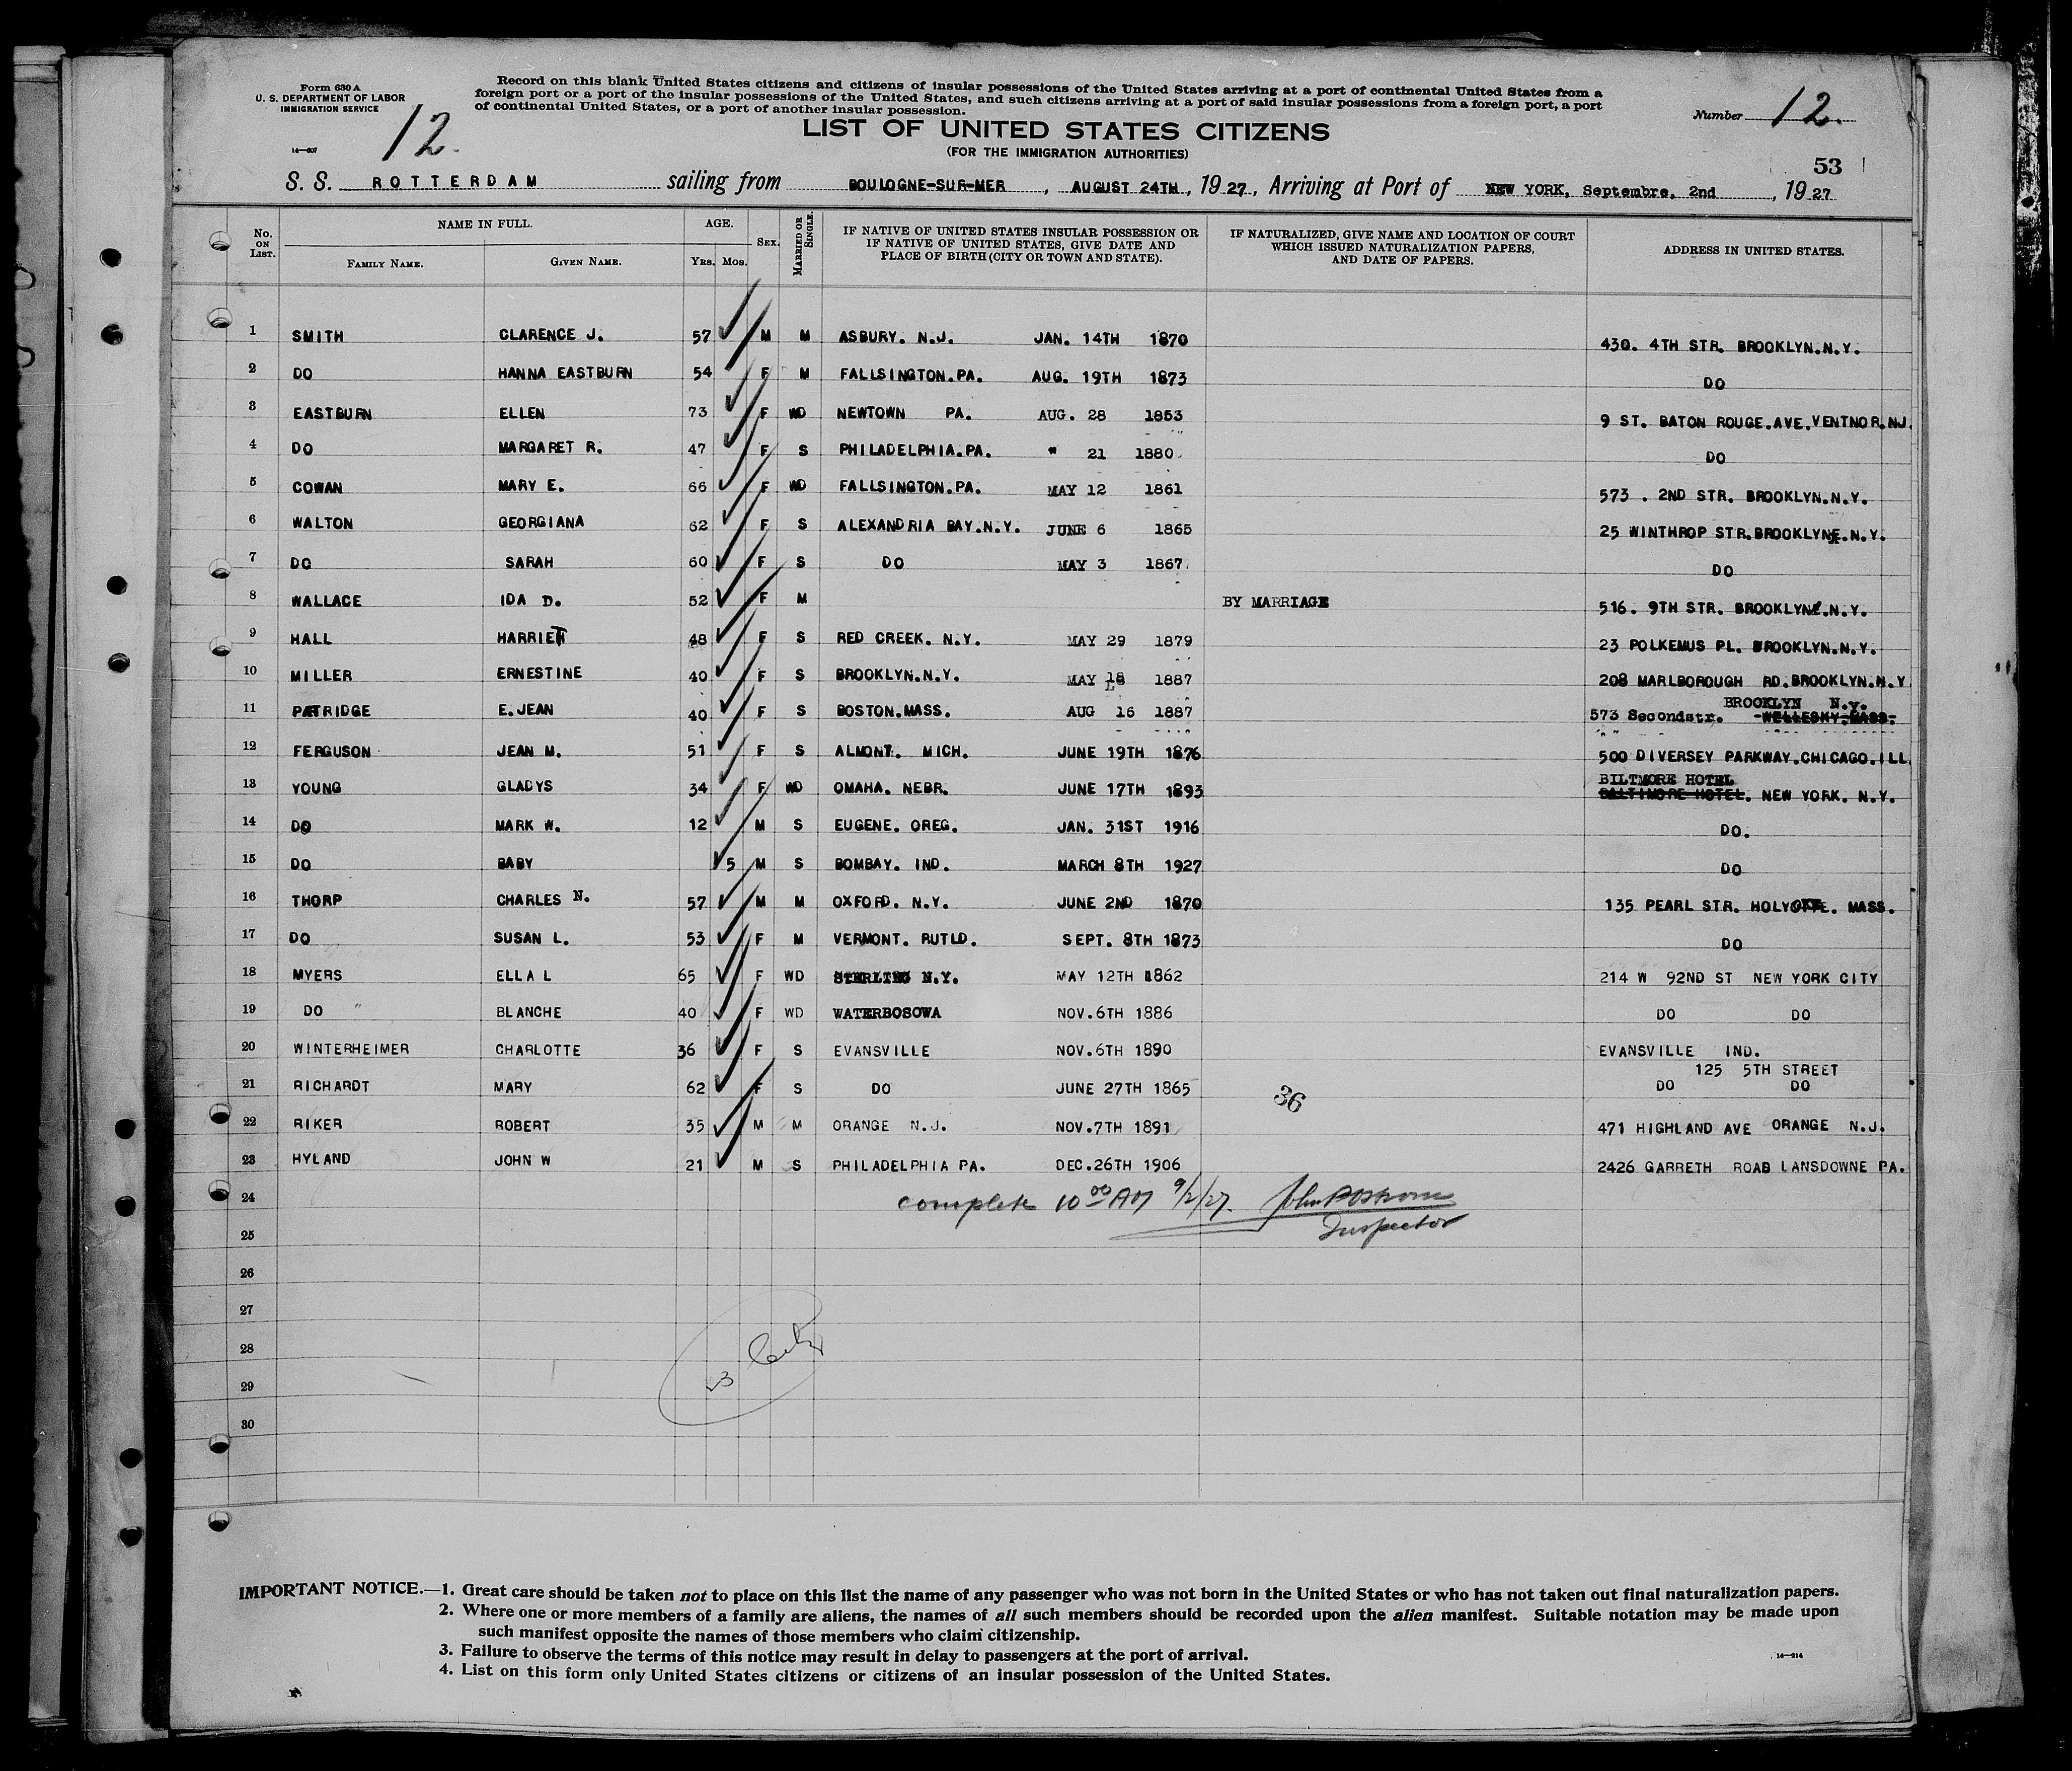 Form 630 A
U. S. DEPARTMENT OF LABOR
IMMIGRATION SERVICE
Record on this blank United States citizens and citizens of insular possessions of the United States arriving at a port of continental United States from a
foreign port or a port of the insular possessions of the United States, and such citizens arriving at a port of said insular possessions from a foreign port, a port
of continental United States, or a port of another insular possession.
Number 12.
12.
LIST OF UNITED STATES CITIZENS
(FOR THE IMMIGRATION AUTHORITIES)
53
S. S. ROTTERDAM sailing from BOULOGNE-SUR-MER, AUGUST 24TH, 1927, Arriving at Port of NEW YORK, Septembre, 2nd, 1927
No. ON LIST. NAME IN FULL. AGE. SEX. MARRIED OR SINGLE. IF NATIVE OF UNITED STATES INSULAR POSSESSION OR IF NATIVE OF UNITED STATES, GIVE DATE AND PLACE OF BIRTH (CITY OR TOWN AND STATE). IF NATURALIZED, GIVE NAME AND LOCATION OF COURT WHICH ISSUED NATURALIZATION PAPERS, AND DATE OF PAPERS. ADDRESS IN UNITED STATES.
FAMILY NAME. GIVEN NAME. YRS. MOS.
1 SMITH CLARENCE J. 57 M M ASBURY. N.J. JAN. 14TH 1870 430. 4TH STR. BROOKLYN.N.Y.
2 DO HANNA EASTBURN 54 F M FALLSINGTON.PA. AUG. 19TH 1873 DO
3 EASTBURN ELLEN 73 F WD NEWTOWN PA. AUG. 28 1853 9 ST. BATON ROUGE.AVE.VENTNOR.NJ.
4 DO MARGARET R. 47 F S PHILADELPHIA.PA. " 21 1880 DO
5 COWAN MARY E. 66 F WD FALLSINGTON.PA. MAY 12 1861 573 . 2ND STR. BROOKLYN.N.Y.
6 WALTON GEORGIANA 62 F S ALEXANDRIA BAY.N.Y. JUNE 6 1865 25 WINTHROP STR.BROOKLYN.N.Y.
7 DO SARAH 60 F S DO MAY 3 1867 DO
8 WALLACE IDA D. 52 F M BY MARRIAGE 516. 9TH STR. BROOKLYN.N.Y.
9 HALL HARRIET 48 F S RED CREEK. N.Y. MAY 29 1879 23 POLKEMUS PL. BROOKLYN.N.Y.
10 MILLER ERNESTINE 40 F S BROOKLYN.N.Y. MAY 18 1887 208 MARLBOROUGH RD.BROOKLYN.N.Y
11 PATRIDGE E.JEAN 40 F S BOSTON.MASS. AUG 16 1887 573 Secondstr. BROOKLYN N.Y. WELLESKY.MASS.
12 FERGUSON JEAN M. 51 F S ALMONT. MICH. JUNE 19TH 1876 500 DIVERSEY PARKWAY.CHICAGO.ILL.
13 YOUNG GLADYS 34 F WD OMAHA. NEBR. JUNE 17TH 1893 BILTMORE HOTEL BALTIMORE HOTEL. NEW YORK. N.Y.
14 DO MARK W. 12 M S EUGENE. OREG. JAN. 31ST 1916 DO.
15 DO BABY 5 M S BOMBAY. IND. MARCH 8TH 1927 DO
16 THORP CHARLES N. 57 M M OXFORD. N.Y. JUNE 2ND 1870 135 PEARL STR. MASS.
17 DO SUSAN L. 53 F M VERMONT. RUTLD. SEPT. 8TH 1873 DO
18 MYERS ELLA L 65 F WD STERLING N.Y. MAY 12TH 1862 214 W 92ND ST NEW YORK CITY
19 DO " BLANCHE 40 F WD WATERBOSOWA NOV.6TH 1886 DO DO
20 WINTERHEIMER CHARLOTTE 36 F S EVANSVILLE NOV.6TH 1890 EVANSVILLE IND.
125 5TH STREET
21 RICHARDT MARY 62 F S DO JUNE 27TH 1865 DO DO
36
22 RIKER ROBERT 35 M M ORANGE N.J. NOV.7TH 1891 471 HIGHLAND AVE ORANGE N.J.
23 HYLAND JOHN W 21 M S PHILADELPHIA PA. DEC.26TH 1906 2426 GARRETH ROAD LANSDOWNE PA.
24 complete 10 00 AM 9/2/27. John
25 Inspector
26
27
28
29
30
IMPORTANT NOTICE.—1. Great care should be taken not to place on this list the name of any passenger who was not born in the United States or who has not taken out final naturalization papers.
2. Where one or more members of a family are aliens, the names of all such members should be recorded upon the alien manifest. Suitable notation may be made upon
such manifest opposite the names of those members who claim citizenship.
3. Failure to observe the terms of this notice may result in delay to passengers at the port of arrival.
4. List on this form only United States citizens or citizens of an insular possession of the United States.
14—214